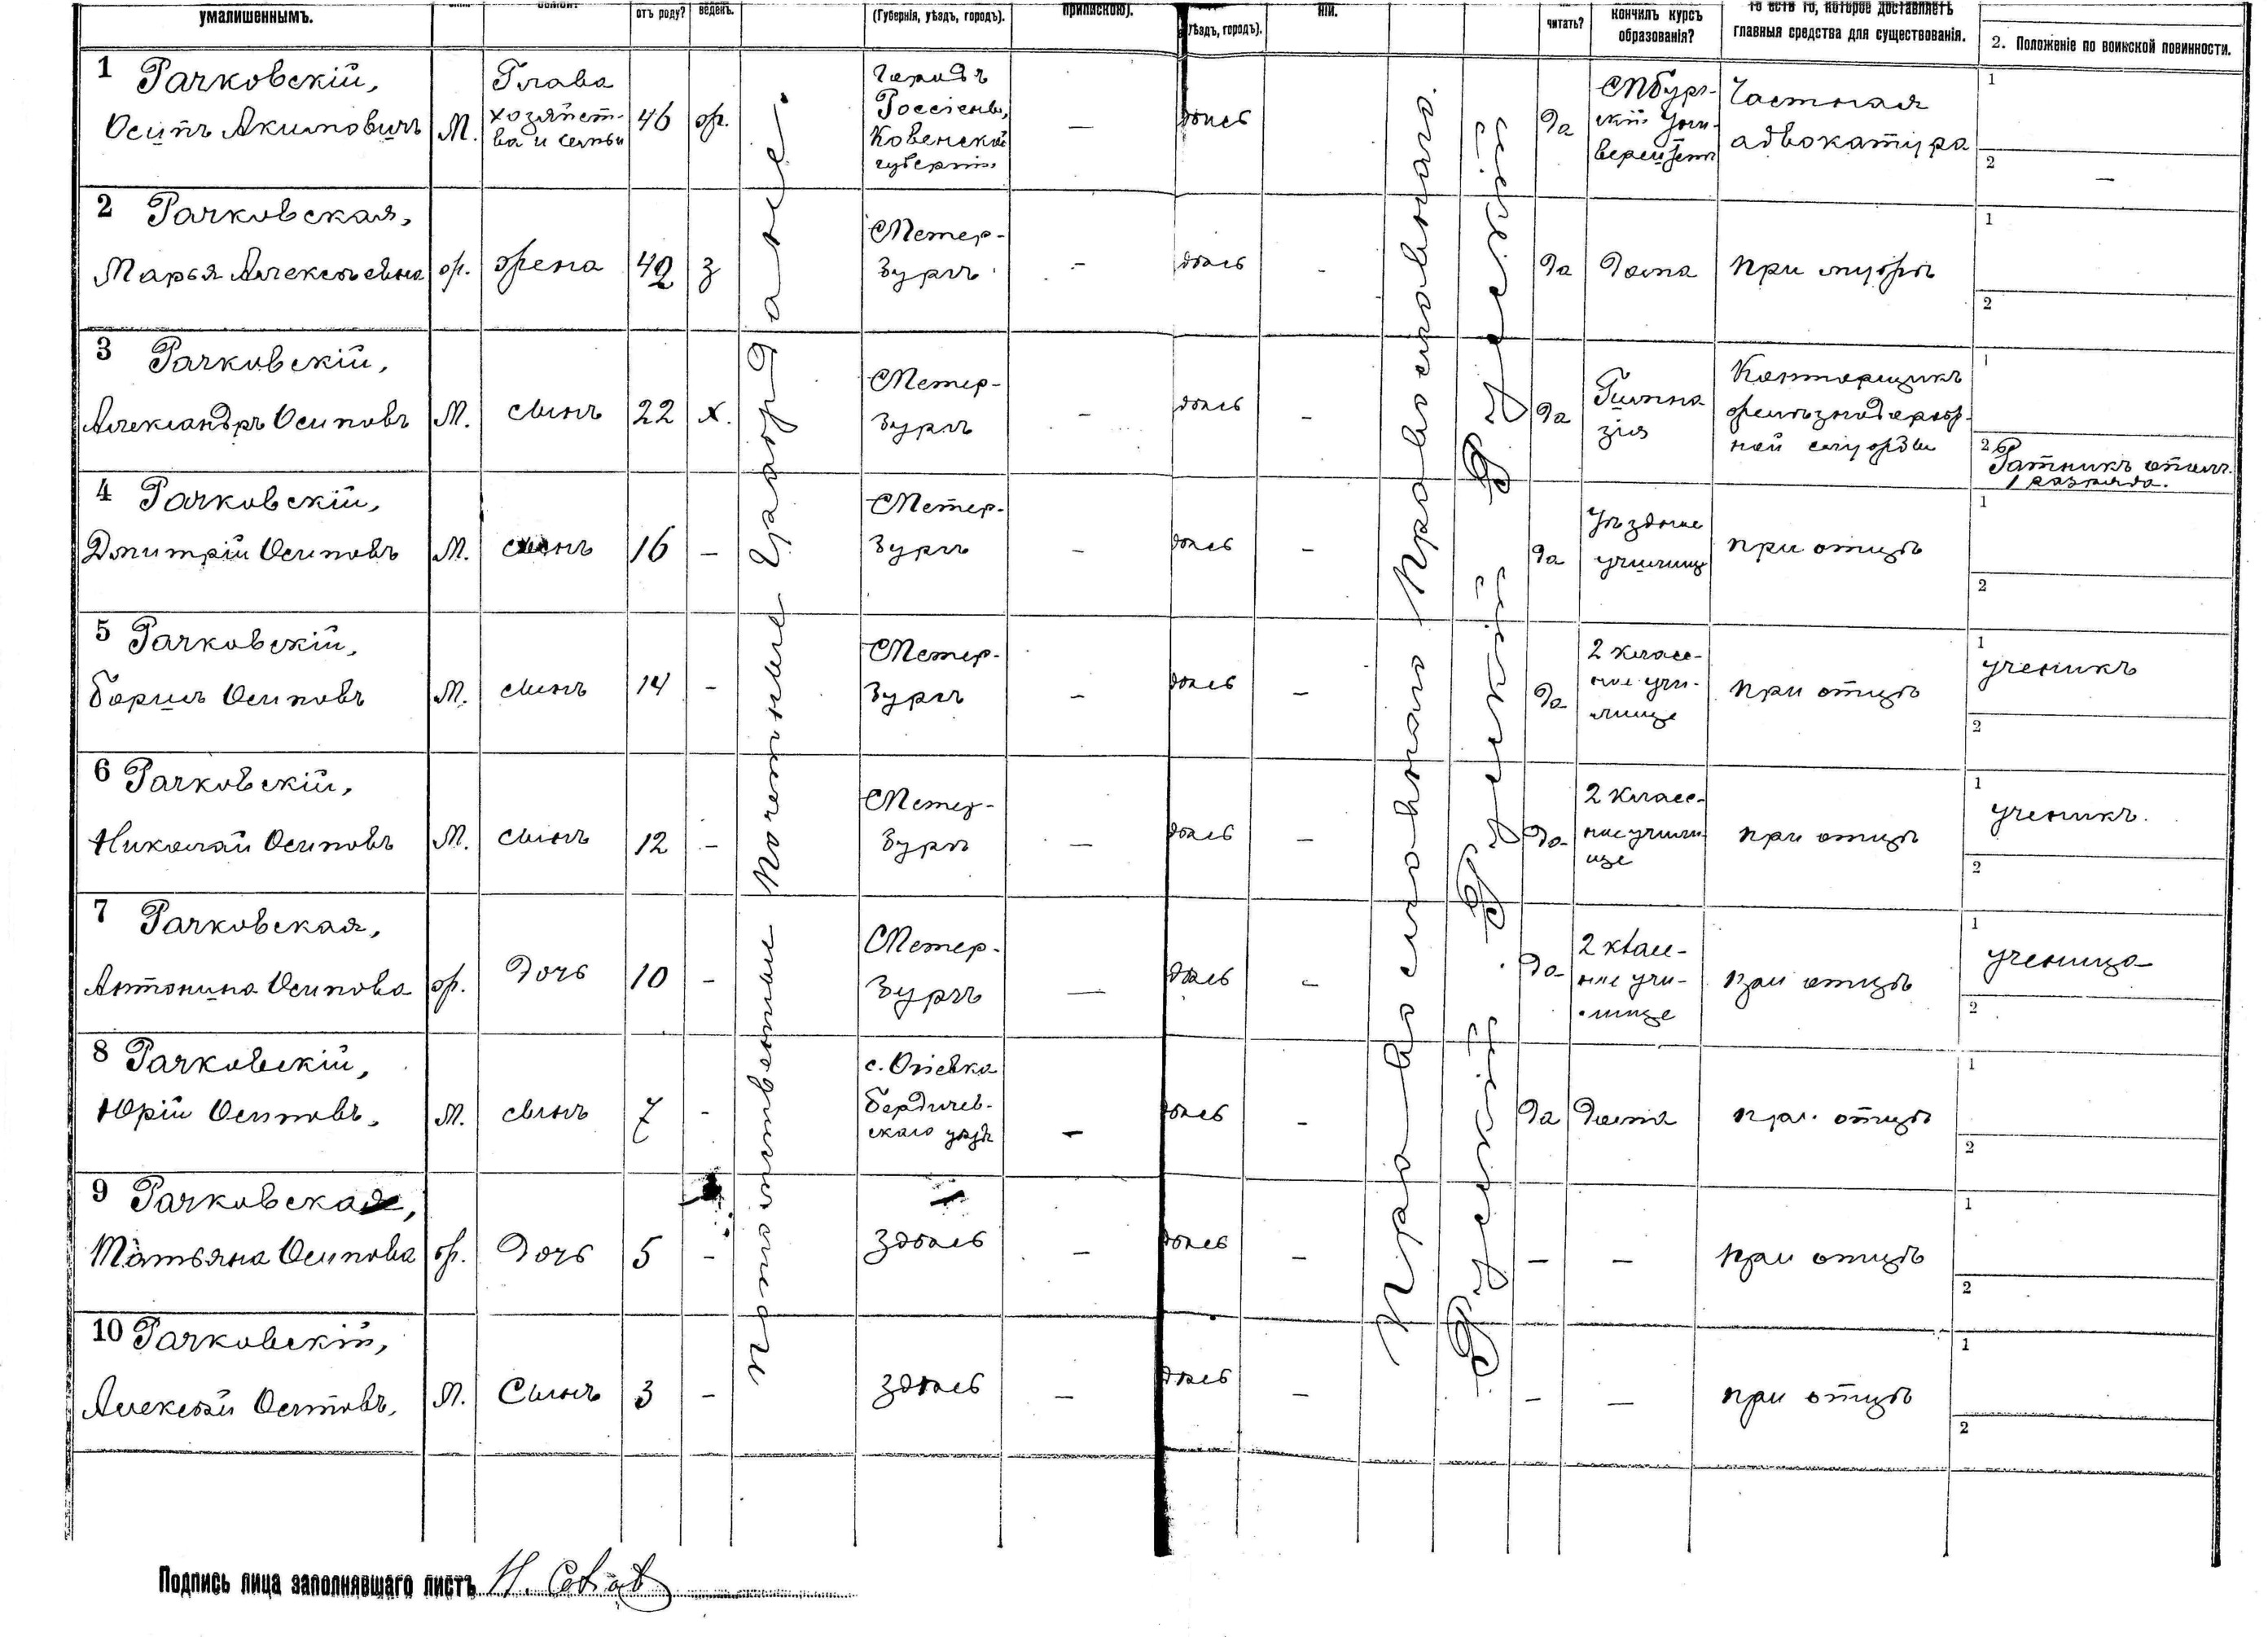 умалишеннымъ.
отъ роду?
веденъ.
(Губернія, уѣздъ, городъ).
припискою).
уѣздъ, городъ).
ніи.
читать?
кончилъ курсъ
образованія?
то есть то, которое доставляетъ
главныя средства для существованія.
2. Положеніе по воинской повинности.
1 Рачковскій,
Осипъ Акимовичъ
М.
Глава
хозяйст-
ва и семьи
46
ж.
Городъ
Россіены,
Ковенской
губерніи
—
здѣсь
Да
СПбург-
скій Уни-
верситетъ
Частная
адвокатура
1
2
—
2 Рачковская,
Марья Алексѣевна
ж.
жена
42
з
СПетер-
бургъ
-
здѣсь
-
Да
Дома
при мужѣ
1
2
3 Рачковскій,
Александръ Осиповъ
М.
сынъ
22
х.
СПетер-
бургъ
-
здѣсь
-
Да
Гимна
зія
Конторщикъ
желѣзнодорож-
ной службы
1
2
Ратникъ ополч.
1 разряда.
4 Рачковскій,
Дмитрій Осиповъ
М.
сынъ
16
-
СПетер-
бургъ
-
здѣсь
-
Да
Уѣздное
училище
при отцѣ
1
2
5 Рачковскій,
Борисъ Осиповъ
М.
сынъ
14
-
СПетер-
бургъ
-
здѣсь
-
Да
2 класс-
ное учи-
лище
при отцѣ
1
ученикъ
2
6 Рачковскій,
Николай Осиповъ
М.
сынъ
12
-
СПетер-
бургъ
—
здѣсь
-
Да
2 класс-
ное учили-
ще
при отцѣ
1
ученикъ.
2
7 Рачковская,
Антонина Осипова
ж.
Дочь
10
-
СПетер-
бургъ
—
здѣсь
-
Да
2 класс-
ное учи-
лище
при отцѣ
1
ученица
2
8 Рачковскій,
Юрій Осиповъ.
М.
сынъ
7
-
с. Огіевка
Бердичев-
скаго уѣзд.
-
здѣсь
-
Да
Дома
при отцѣ
1
2
9 Рачковская,
Татьяна Осипова
ж.
Дочь
5
-
здѣсь
-
здѣсь
-
-
-
при отцѣ
1
2
10 Рачковскій,
Алексѣй Осиповъ.
М.
Сынъ
3
-
здѣсь
-
здѣсь
-
-
-
при отцѣ
1
2
потомственные Почетные Граждане.
Православнаго Православнаго.
Русскій. Русскій Русскій
Подпись лица заполнявшаго листъ